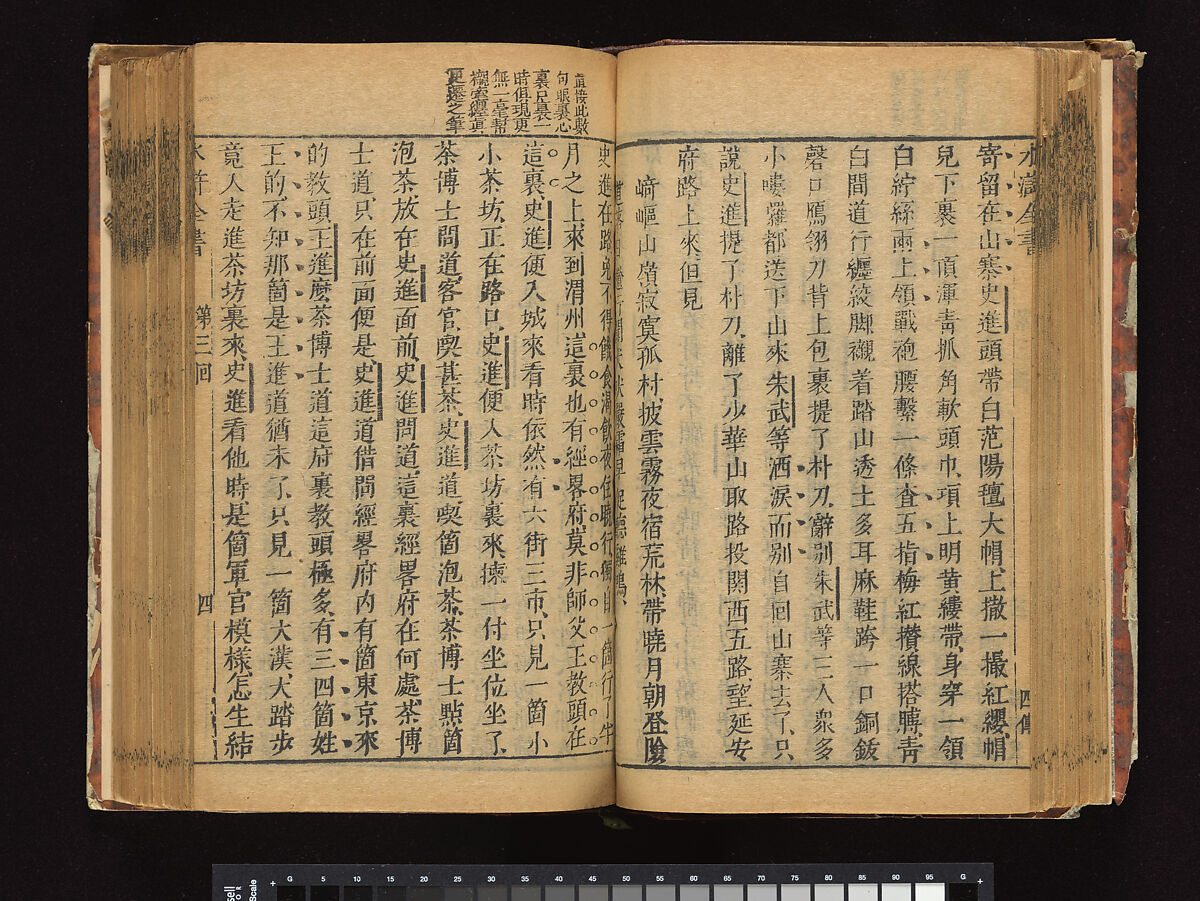 水滸全書
四傳
寄留在山寨史進頭帶白范陽氊大帽上撒一撮紅纓帽
兒下裹一頂渾青抓角軟頭巾、項上明黃縷帶、身穿一領
白紵絲兩上領戰袍腰繫一條查五指梅紅攢線搭膊、青
白間道行纏絞脚襯着踏山透土多耳麻鞋跨一口銅鈸
磬口鴈翎刀背上包裹提了朴刀、辭別朱武等三人衆多
小嘍囉都送下山來朱武等洒淚而别自回山寨去了、只
說史進提了朴刀、離了少華山取路投關西五路、望延安
府路上來、但見
崎嶇山嶺寂寞孤村、披雲霧夜宿荒林、帶曉月朝登險
史進在路免不得飢食渴飲夜住曉行獨自一箇行了半
月之上來到渭州、這裏也有經畧府、莫非師父王教頭在
這裏、史進便入城來看時依然有六街三市、只見一箇小
小茶坊、正在路口、史進便入茶坊裏來揀一付坐位坐了、
茶博士問道、客官、喫甚茶、史進道、喫箇泡茶、茶博士點箇
泡茶放在史進面前、史進問道、這裏經畧府在何處、茶博
士道、只在前面便是、史進道借問經畧府内有箇東京來
的教頭、王進麽茶博士道這府裏教頭極多、有三四箇姓
王的、不知那箇是王進道猶未了、只見一箇大漢、大踏步
竟人走進茶坊裏來、史進看他時是箇軍官模樣、怎生結
水滸全書
第三回
四
直接此數
句眼裏心
裏只是一
時俱現更
無一毫幫
襯牽纏真
更遷之筆